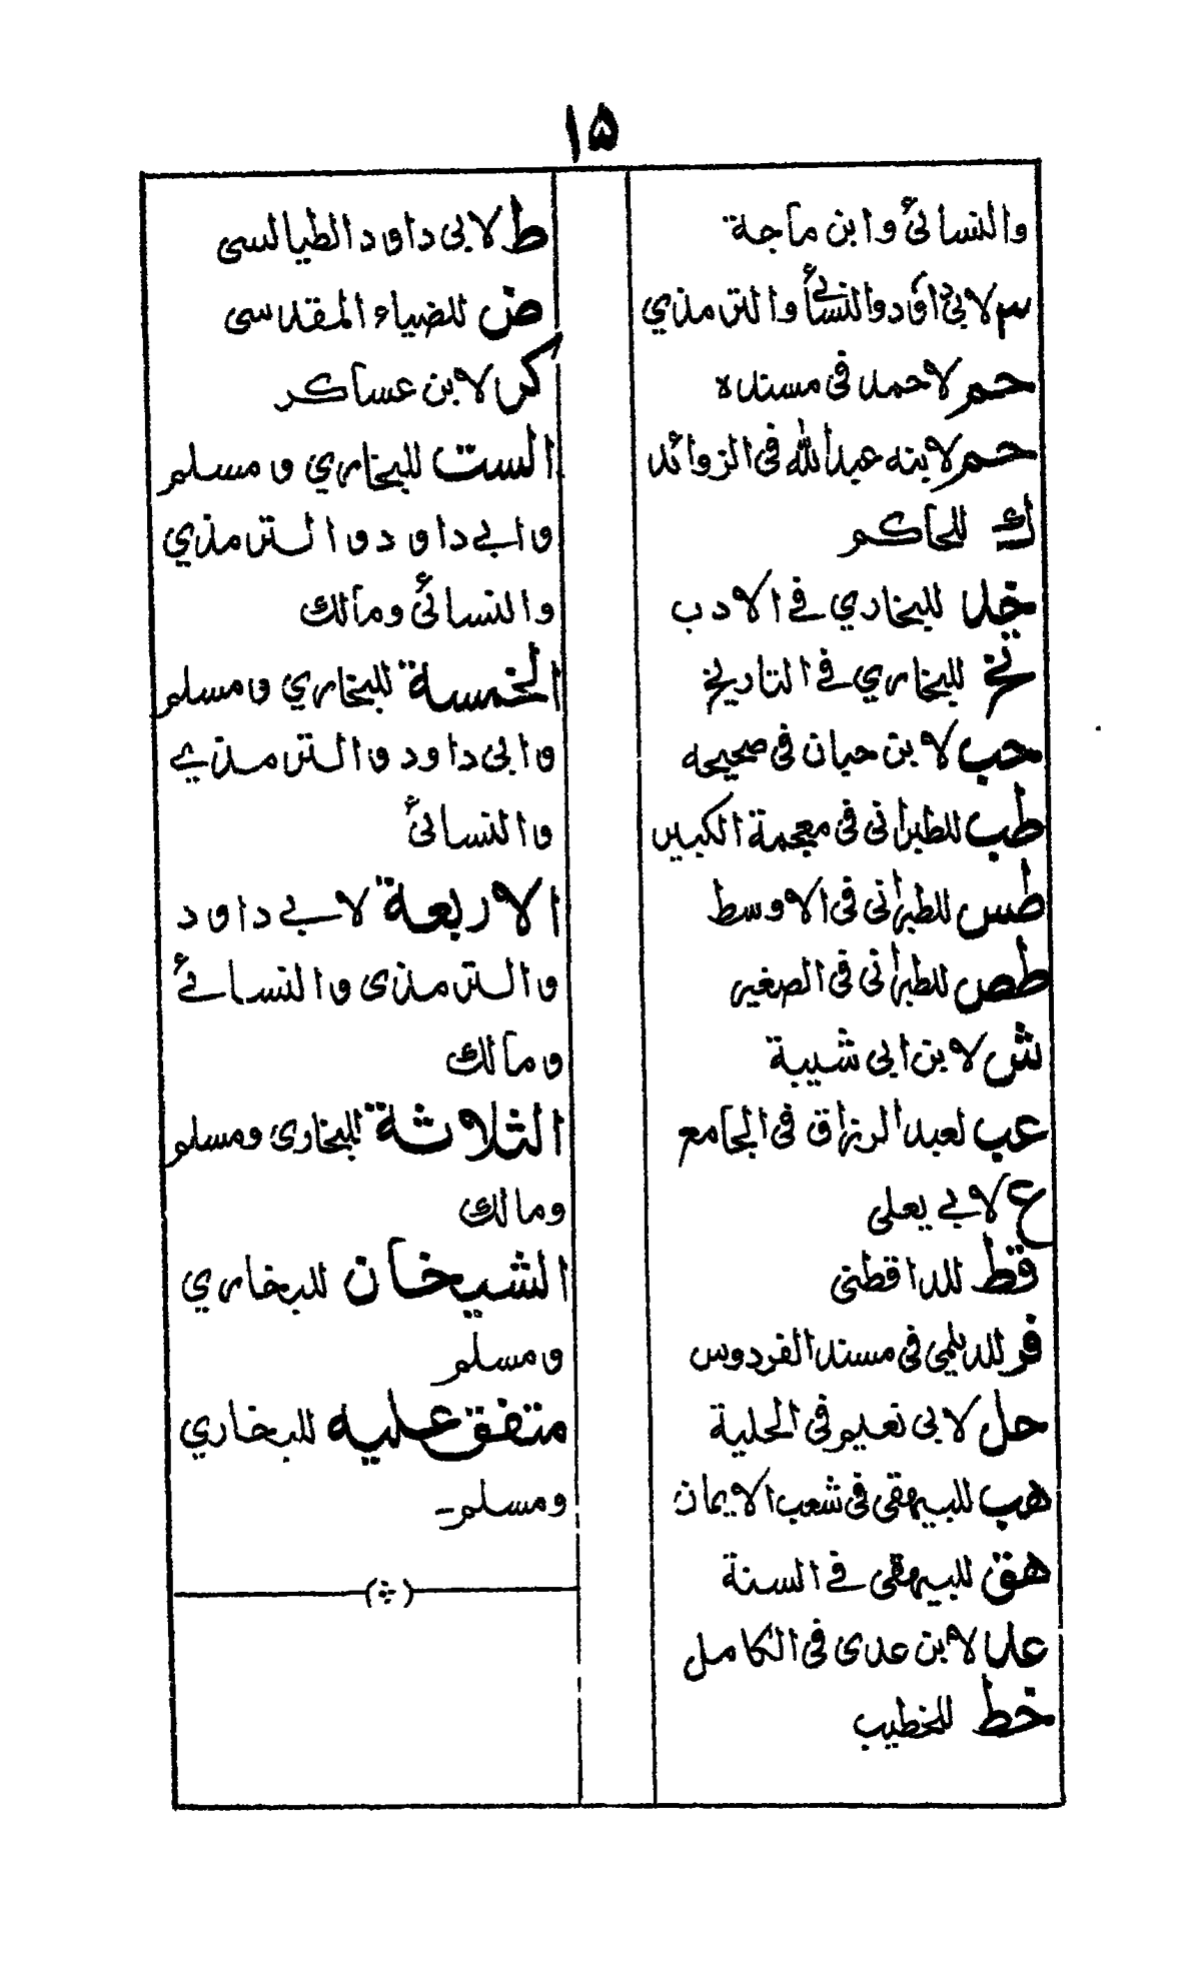 ۱۵
والنسائی وابن ماجة
۳ لابی داؤد والنسائی والترمذي
حم لاحمد فی مسنده
حم لابنه عبدالله فی الزوائد
ك للحاكم
خد للبخاري في الادب
تخ للبخاري في التاريخ
حب لابن حبان فی صحيحه
طب للطبرانی فی معجمة الكبير
طس للطبرانی فی الاوسط
طص للطبرانی فی الصغير
ش لابن ابی شيبة
عب لعبد الرزاق فی الجامع
ع لابي يعلی
قط للدا قطنی
فر للديلمی فی مسند الفردوس
حل لابی نعيم فی الحلية
هب للبيهقی فی شعب الايمان
هق للبيهقی في السنة
عد لابن عدی فی الكامل
خط للخطيب
ط لابی داؤد الطيالسی
ض للضياء المقدسی
كر لابن عساكر
الست للبخاري و مسلم
وابي داود والترمذي
والنسائی ومالك
الخمسة للبخاري ومسلم
وابی داود والترمذي
والنسائی
الاربعة لابي داود
والترمذی والنسائي
ومالك
الثلاثة للبخاری ومسلم
ومالك
الشيخان للبخاري
ومسلم
متفق عليه للبخاري
ومسلم۔